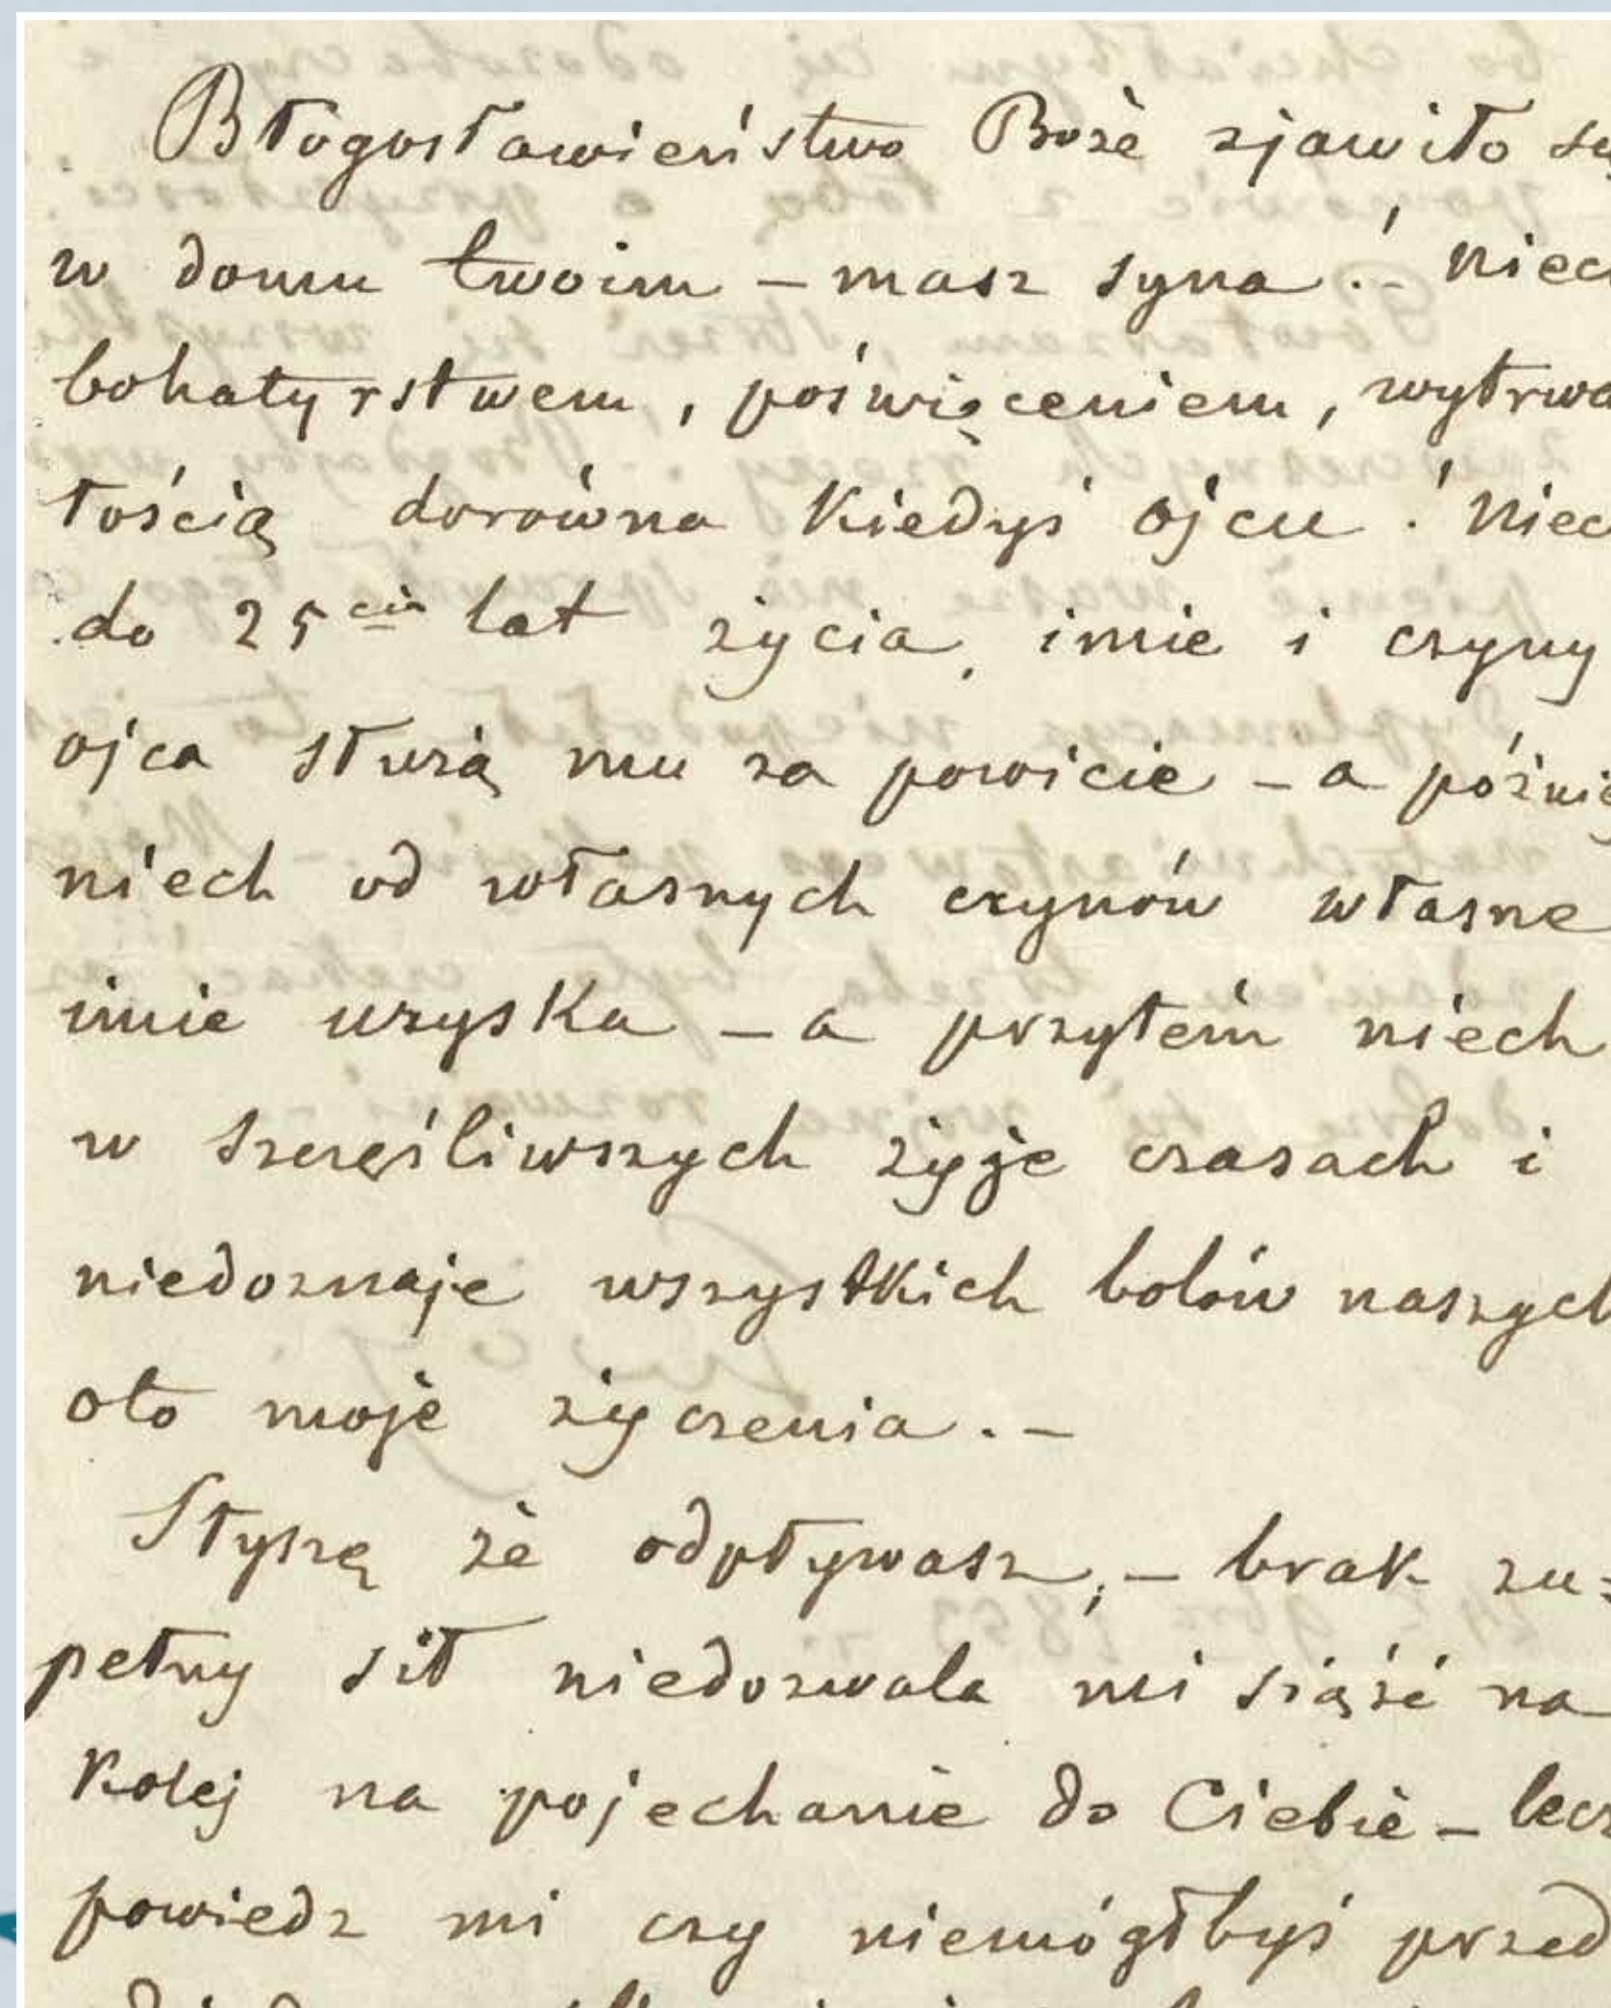 Błogosławieństwo Boże zjawiło
w domu twoim – masz syna! –
bohatyrstwem, poświęceniem, wytrwa
łością dorówna kiedyś ojcu!
do 25ciu lat życia, imie i czyny
ojca służą mu za powicie – a
niech od własnych czynów własne
imie uzyska – a przytém niech
w szczęśliwszych żyje czasach i
niedoznaje wszystkich bolów naszych
oto moje życzenia. –
Słyszę że odpływasz; – brak zu=
pełny sił niedozwala mi siąść na
kolej na pojechanie do Ciebie –
powiedz mi czy niemógłbyś przed